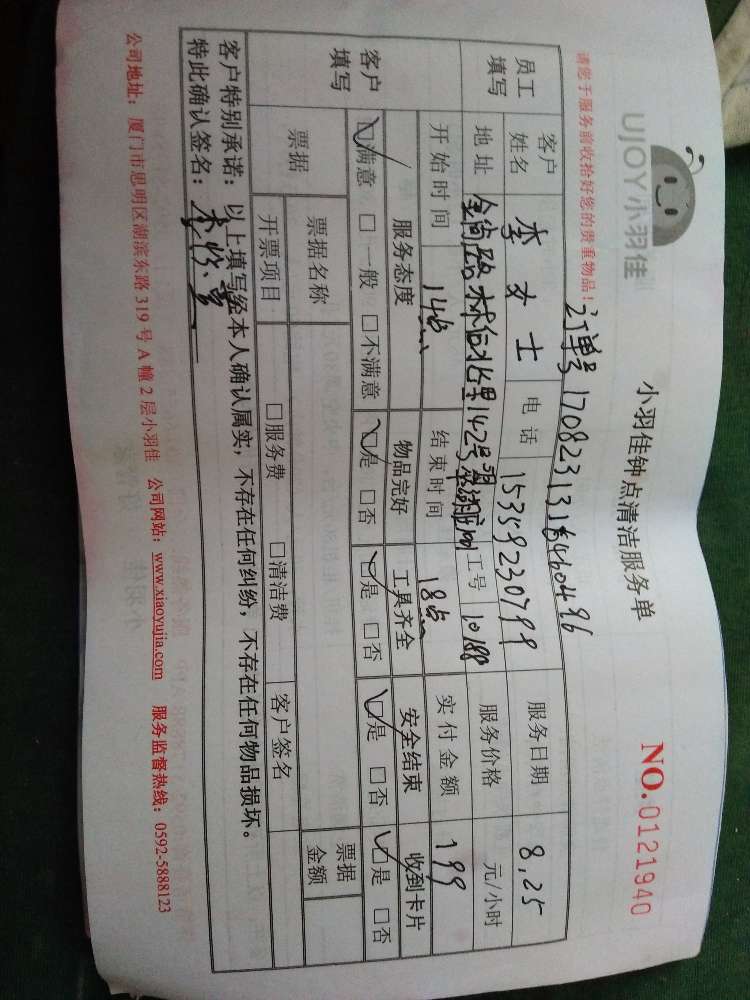 UJOY小羽佳
小羽佳钟点清洁服务单
NO.0121940
请您于服务前收拾好您的贵重物品！
订单号 170823131
员工填写
客户姓名 李女士 电话 15359230799 服务日期 8.25
地址 北里142号 工号 10188 服务价格 元/小时
开始时间 14点 结束时间 18点 实付金额 199
客户填写
服务态度 物品完好 工具齐全 安全结束 收到卡片
☑满意 □一般 □不满意 ☑是 □否 ☑是 □否 ☑是 □否 ☑是 □否
票据 票据名称 票据金额
开票项目 □服务费 □清洁费 客户签名
客户特别承诺：以上填写经本人确认属实，不存在任何纠纷，不存在任何物品损坏。
特此确认签名：李
公司地址：厦门市思明区湖滨东路 319 号 A 幢 2 层小羽佳 公司网站：www.xiaoyujia.com 服务监督热线：0592-5888123